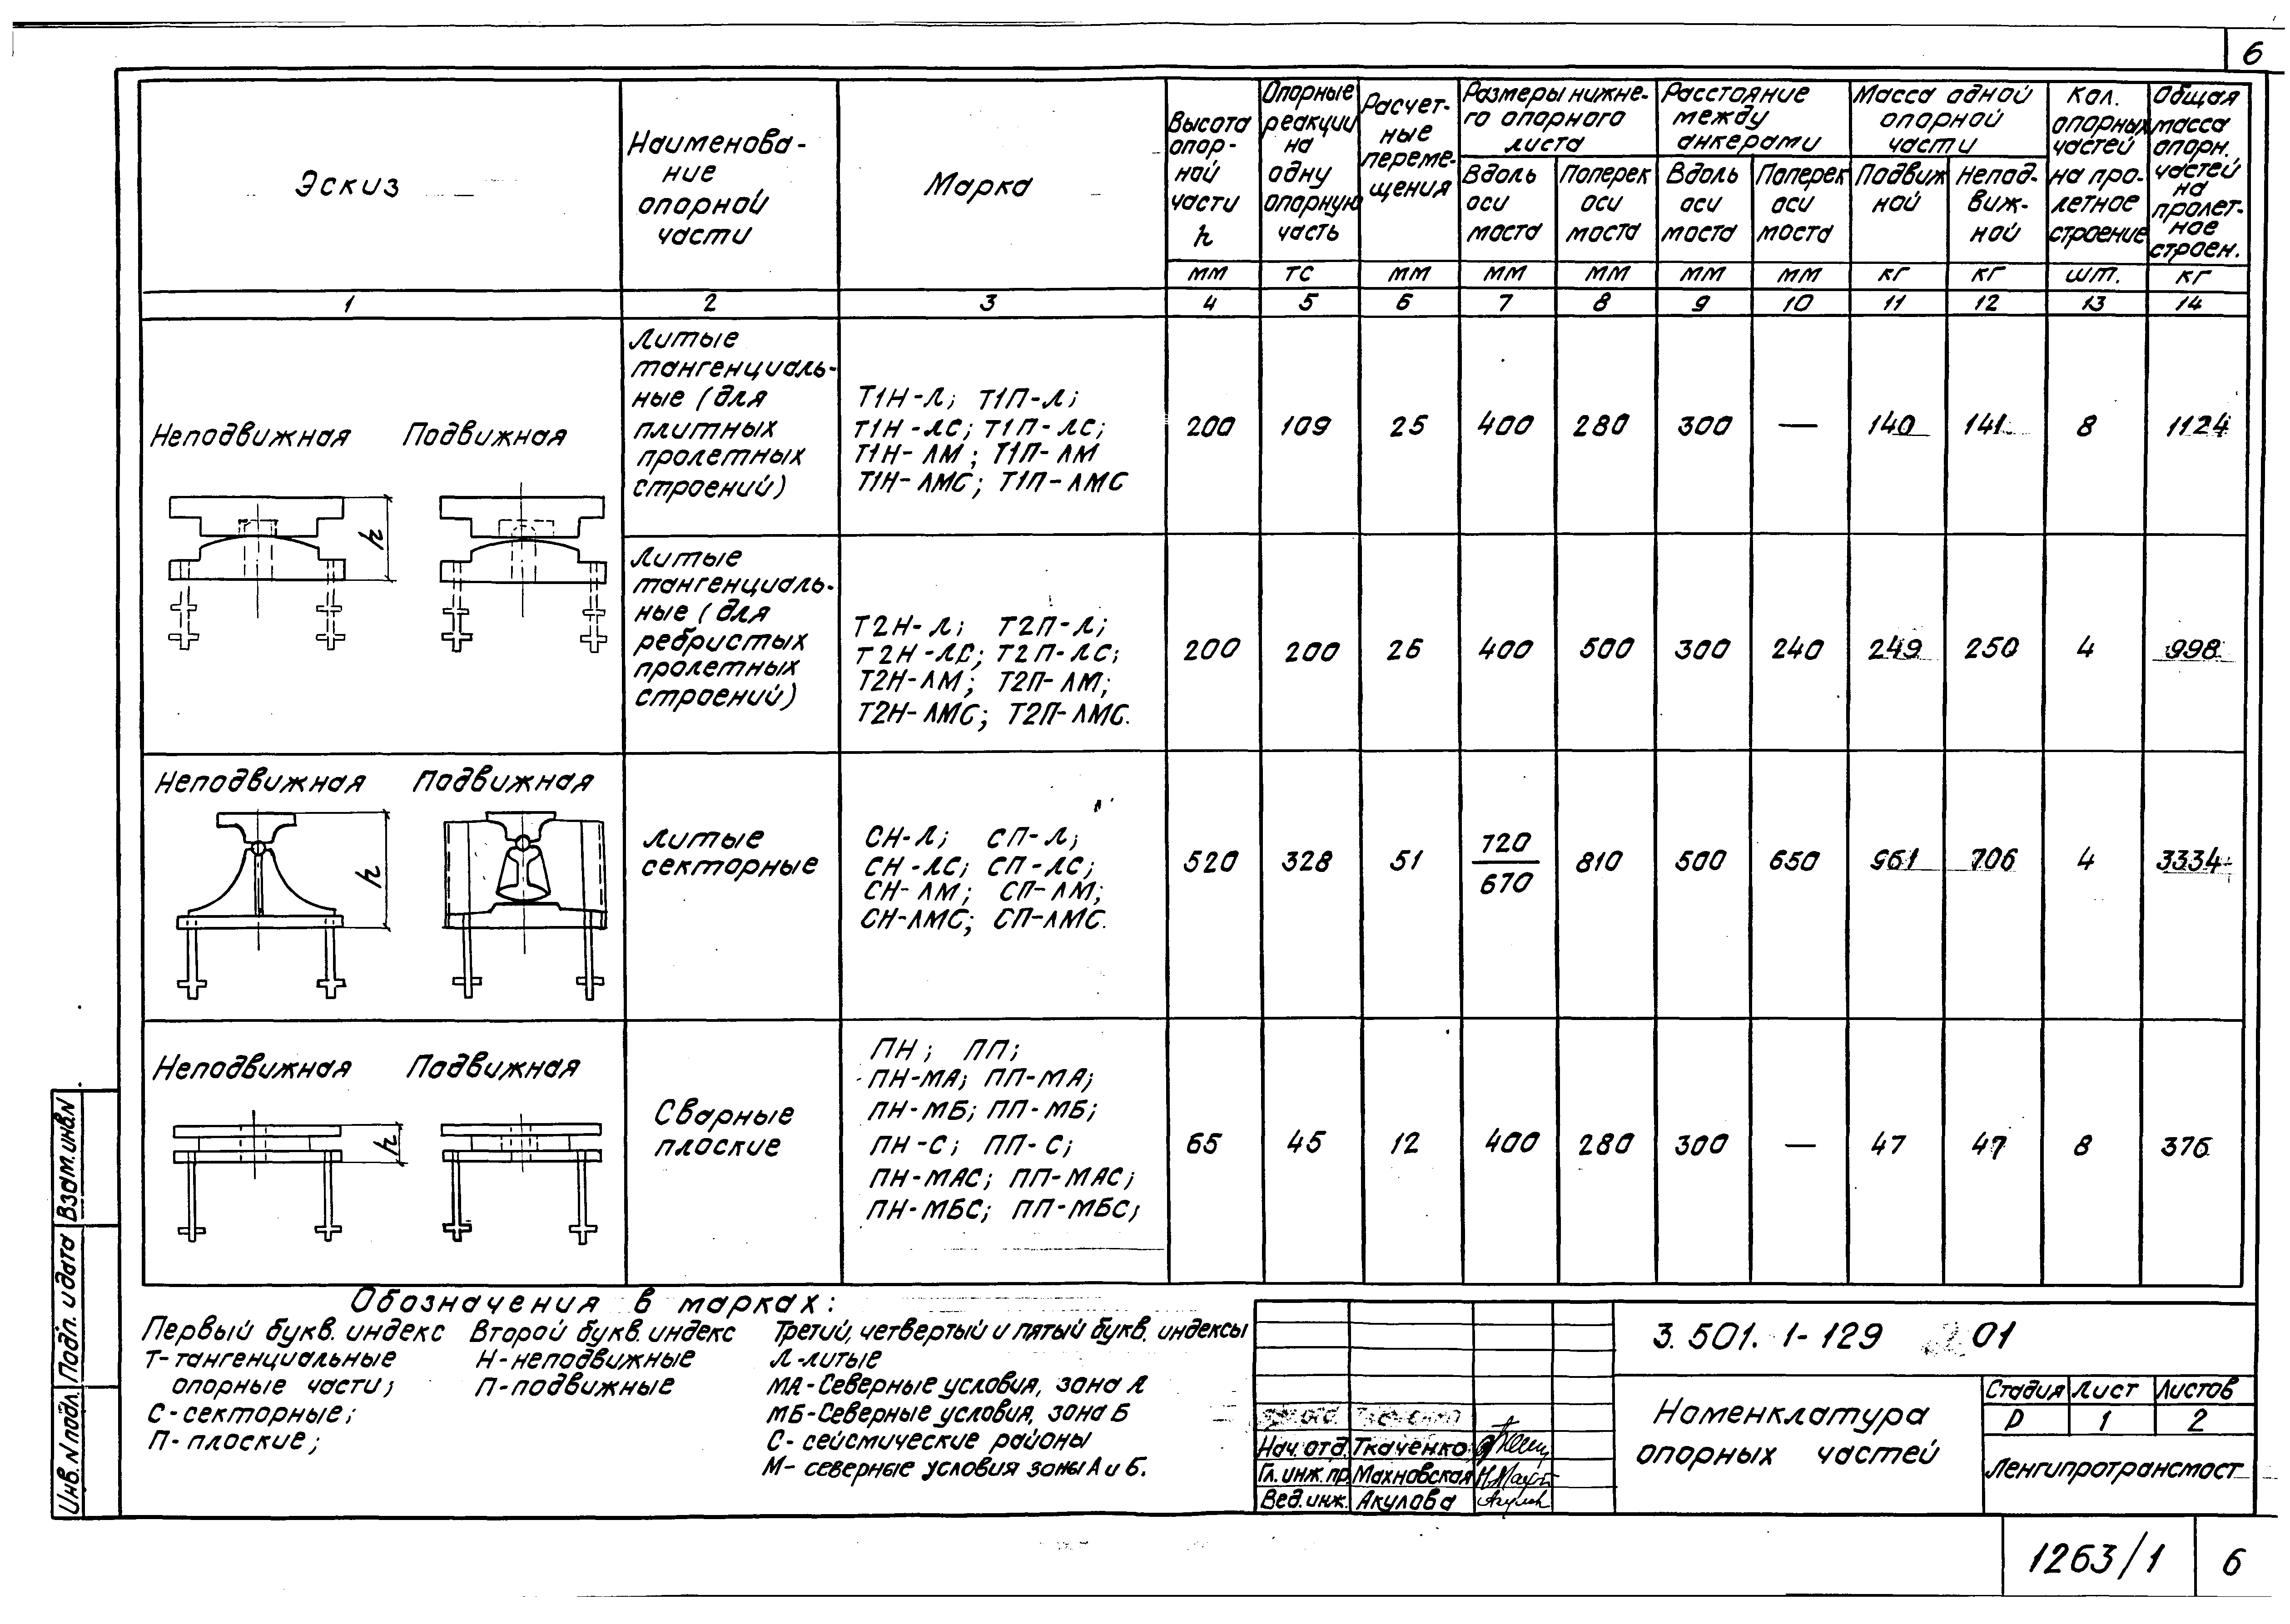 6
Эскиз
Наименова-
ние
опорной
части
Марка
Высота
опор-
ной
части
h
Опорные
реакции
на
одну
опорную
часть
Расчет-
ные
переме-
щения
Размеры нижне-
го опорного
листа
Вдоль
оси
моста
Поперек
оси
моста
Расстояние
между
анкерами
Вдоль
оси
моста
Поперек
оси
моста
Масса одной
опорной
части
Подвиж
ной
Непод-
виж-
ной
Кол.
опорных
частей
на про-
летное
строение
Общая
масса
опорн.
частей
на
пролет-
ное
строен.
мм тс мм мм мм мм мм кг кг шт. кг
1 2 3 4 5 6 7 8 9 10 11 12 13 14
Неподвижная Подвижная
h
Литые
тангенциаль-
ные (для
плитных
пролетных
строений)
Т1Н-Л; Т1П-Л;
Т1Н-ЛС; Т1П-ЛС;
Т1Н-ЛМ; Т1П-ЛМ
Т1Н-ЛМС; Т1П-ЛМС
200 109 25 400 280 300 — 140 141 8 1124
Литые
тангенциаль-
ные (для
ребристых
пролетных
строений)
Т2Н-Л; Т2П-Л;
Т2Н-ЛС; Т2П-ЛС;
Т2Н-ЛМ; Т2П-ЛМ;
Т2Н-ЛМС; Т2П-ЛМС.
200 200 26 400 500 300 240 249 250 4 998
Неподвижная Подвижная
h
Литые
секторные
СН-Л; СП-Л;
СН-ЛС; СП-ЛС;
СН-ЛМ; СП-ЛМ;
СН-ЛМС; СП-ЛМС.
520 328 51 720/670 810 500 650 961 706 4 3334
Неподвижная Подвижная
h
Сварные
плоские
ПН; ПП;
ПН-МА; ПП-МА;
ПН-МБ; ПП-МБ;
ПН-С; ПП-С;
ПН-МАС; ПП-МАС;
ПН-МБС; ПП-МБС;
65 45 12 400 280 300 — 47 47 8 376
Обозначения в марках:
Первый букв. индекс
Т-тангенциальные
опорные части;
С-секторные;
П-плоские;
Второй букв. индекс
Н-неподвижные
П-подвижные
Третий, четвертый и пятый букв. индексы
Л-литые
МА-Северные условия, зона А
МБ-Северные условия, зона Б
С- сейсмические районы
М- северные условия зоны А и Б.
Нач. отд. Ткаченко
Гл. инж. пр. Махновская
Вед. инж. Акулова
3. 501. 1-129 01
Номенклатура
опорных частей
Стадия Лист Листов
Р 1 2
Ленгипротрансмост
Взам. инв. N
Подп. и дата
Инв. N подл.
1263/1 6